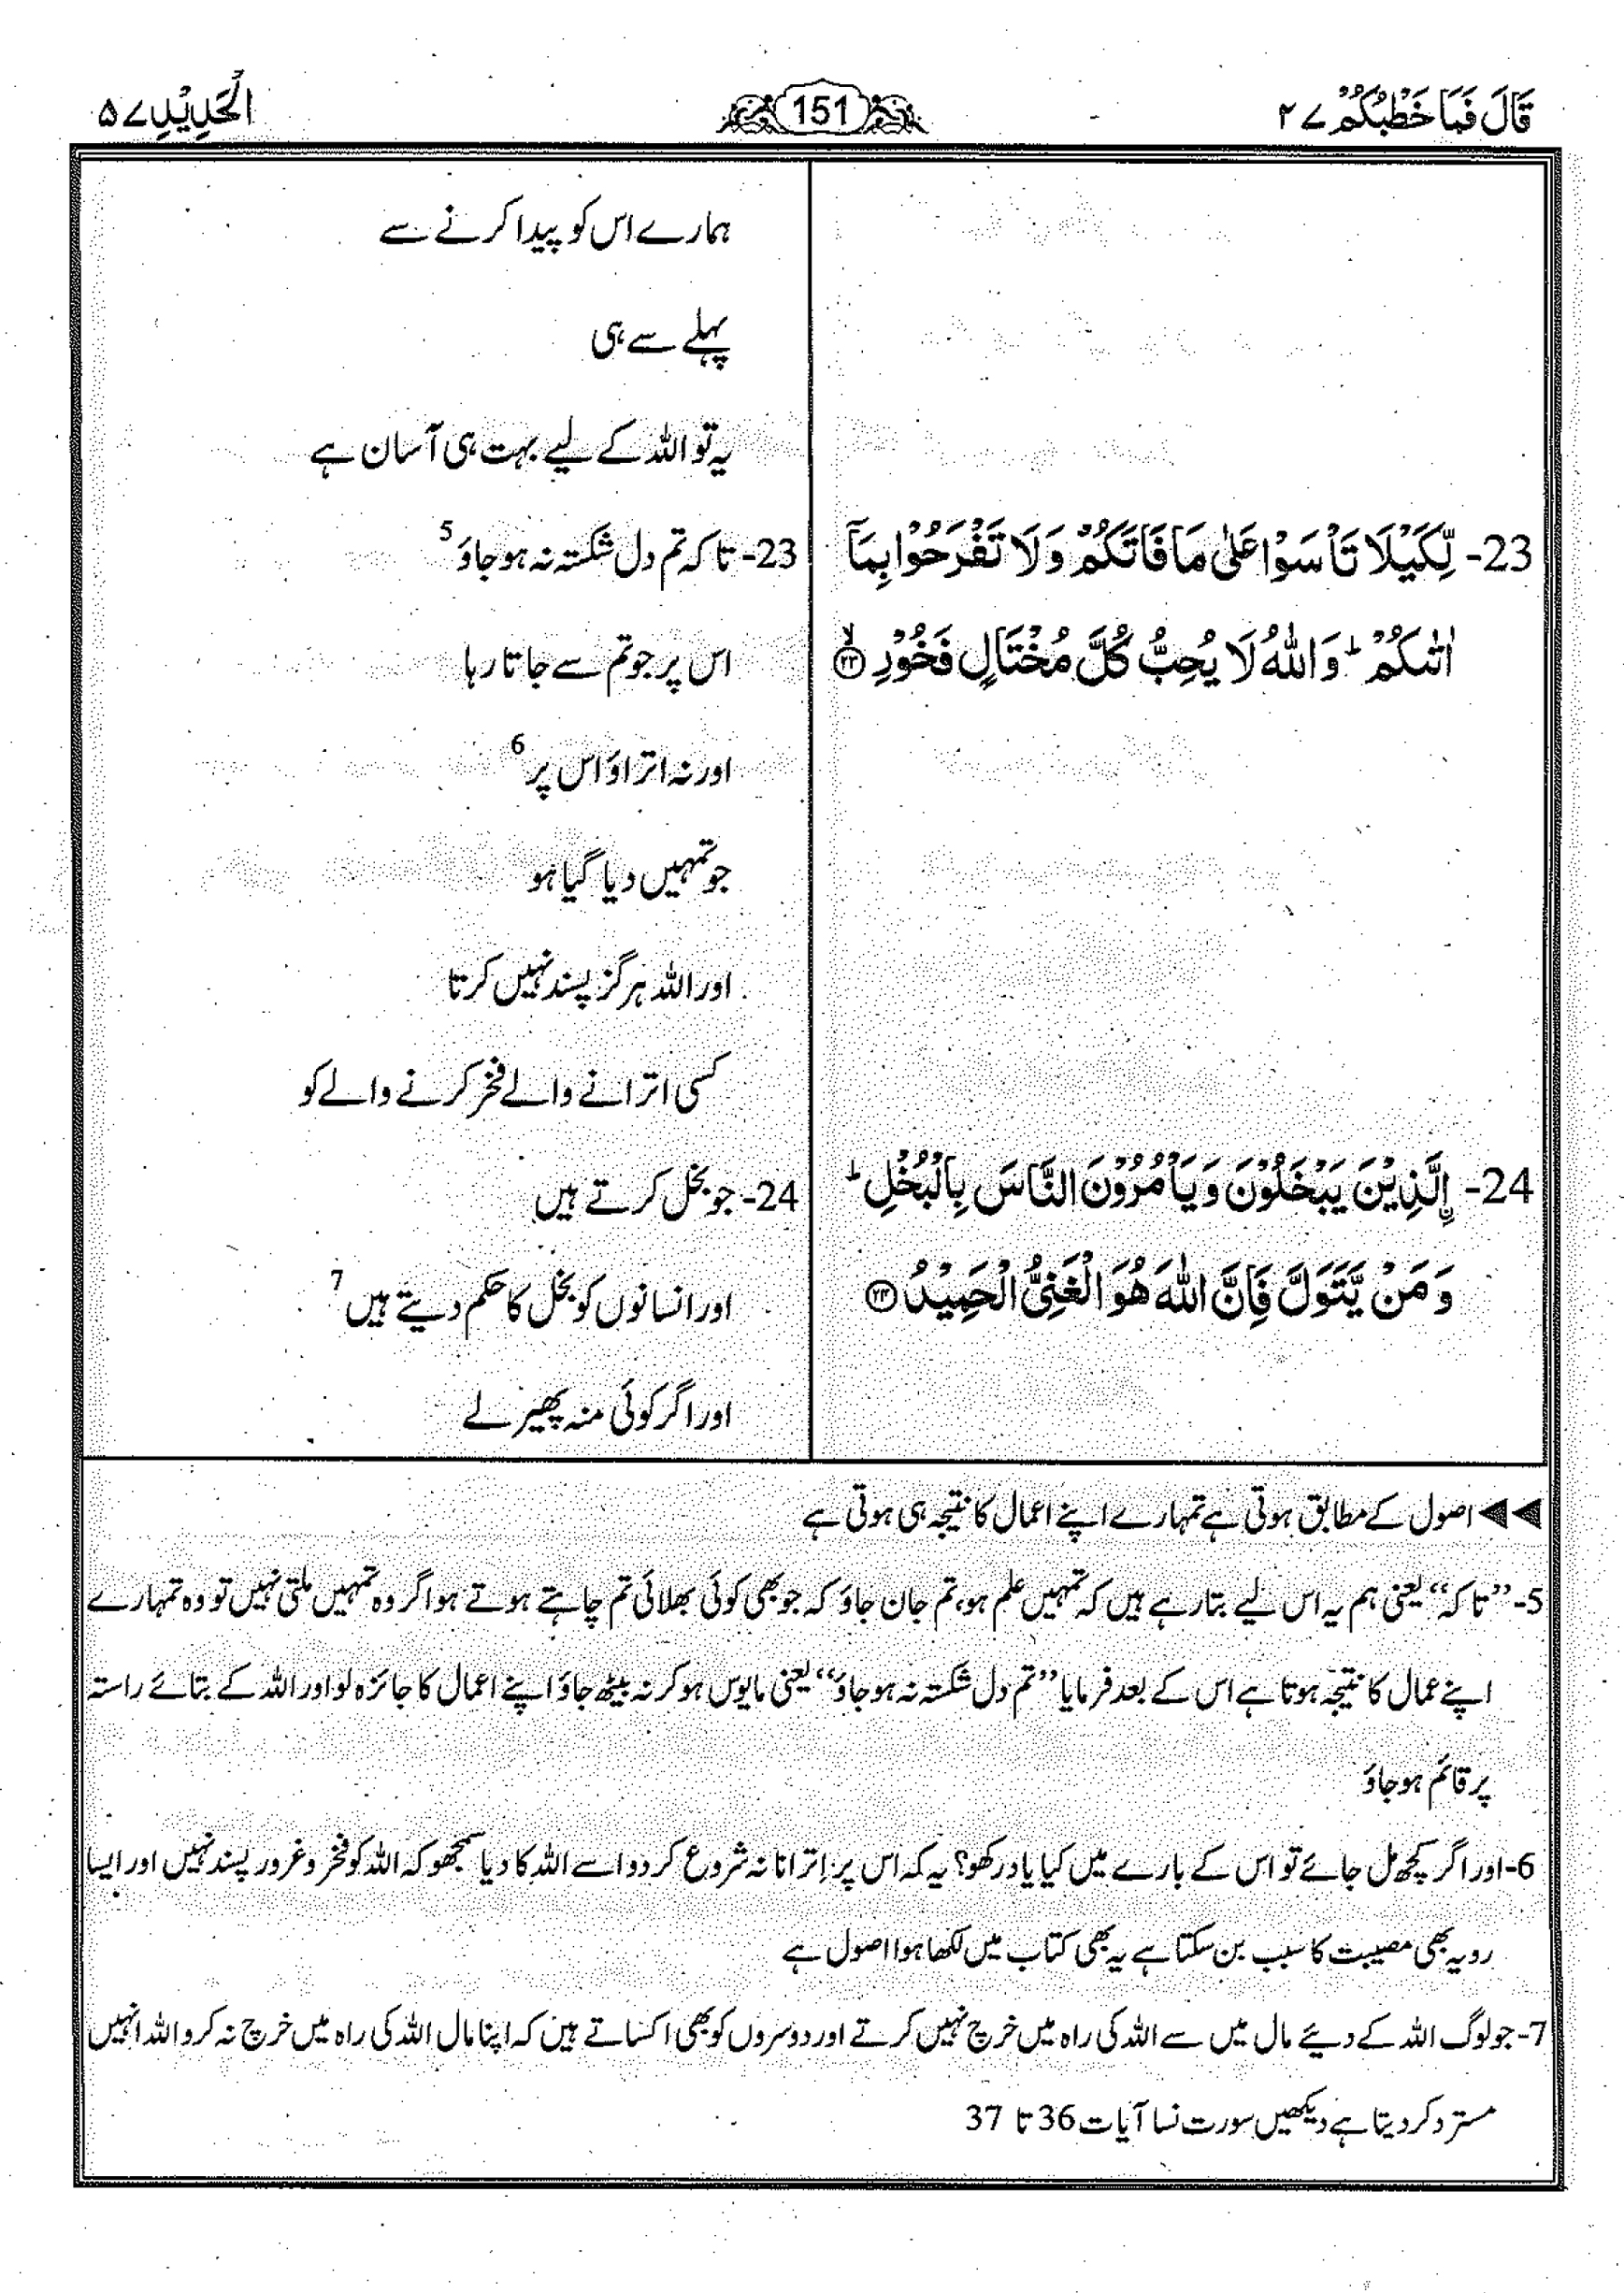 قَالَ فَمَا خَطْبُكُمْ ۲۷
151
اَلْحَدِيْدِ ۵۷
ہمارے اس کو پیدا کرنے سے
پہلے سے ہی
یہ تو اللہ کے لیے بہت ہی آسان ہے
23- لِّكَيْلَا تَاْسَوْا عَلٰى مَا فَاتَكُمْ وَلَا تَفْرَحُوْا بِمَآ
اٰتٰىكُمْ ؕ وَاللّٰهُ لَا يُحِبُّ كُلَّ مُخْتَالٍ فَخُوْرِ ۙ﴿۲۳﴾
23- تاکہ تم دل شکستہ نہ ہو جاؤ 5
اس پر جو تم سے جاتا رہا
اور نہ اتراؤ اس پر 6
جو تمہیں دیا گیا ہو
اور اللہ ہرگز پسند نہیں کرتا
کسی اترانے والے فخر کرنے والے کو
24- اۨلَّذِيْنَ يَبْخَلُوْنَ وَيَاْمُرُوْنَ النَّاسَ بِالْبُخْلِ ؕ
وَمَنْ يَّتَوَلَّ فَاِنَّ اللّٰهَ هُوَ الْغَنِىُّ الْحَمِيْدُ ﴿۲۴﴾
24- جو بخل کرتے ہیں
اور انسانوں کو بخل کا حکم دیتے ہیں 7
اور اگر کوئی منہ پھیر لے
◄◄ اصول کے مطابق ہوتی ہے تمہارے اپنے اعمال کا نتیجہ ہی ہوتی ہے
5- ”تاکہ“ یعنی ہم یہ اس لیے بتا رہے ہیں کہ تمہیں علم ہو، تم جان جاؤ کہ جو بھی کوئی بھلائی تم چاہتے ہوتے ہو اگر وہ تمہیں ملتی نہیں تو وہ تمہارے
اپنے عمال کا نتیجہ ہوتا ہے اس کے بعد فرمایا ”تم دل شکستہ نہ ہو جاؤ“ یعنی مایوس ہو کر نہ بیٹھ جاؤ اپنے اعمال کا جائزہ لو اور اللہ کے بتائے راستہ
پر قائم ہو جاؤ
6- اور اگر کچھ مل جائے تو اس کے بارے میں کیا یاد رکھو؟ یہ کہ اس پر اِترانا نہ شروع کر دو اسے اللہ کا دیا سمجھو کہ اللہ کو فخر و غرور پسند نہیں اور ایسا
رویہ بھی مصیبت کا سبب بن سکتا ہے یہ بھی کتاب میں لکھا ہوا اصول ہے
7- جو لوگ اللہ کے دیئے مال میں سے اللہ کی راہ میں خرچ نہیں کرتے اور دوسروں کو بھی اکساتے ہین کہ اپنا مال اللہ کی راہ میں خرچ نہ کرو اللہ انہیں
مسترد کر دیتا ہے دیکھیں سورت نسا آیات 36 تا 37